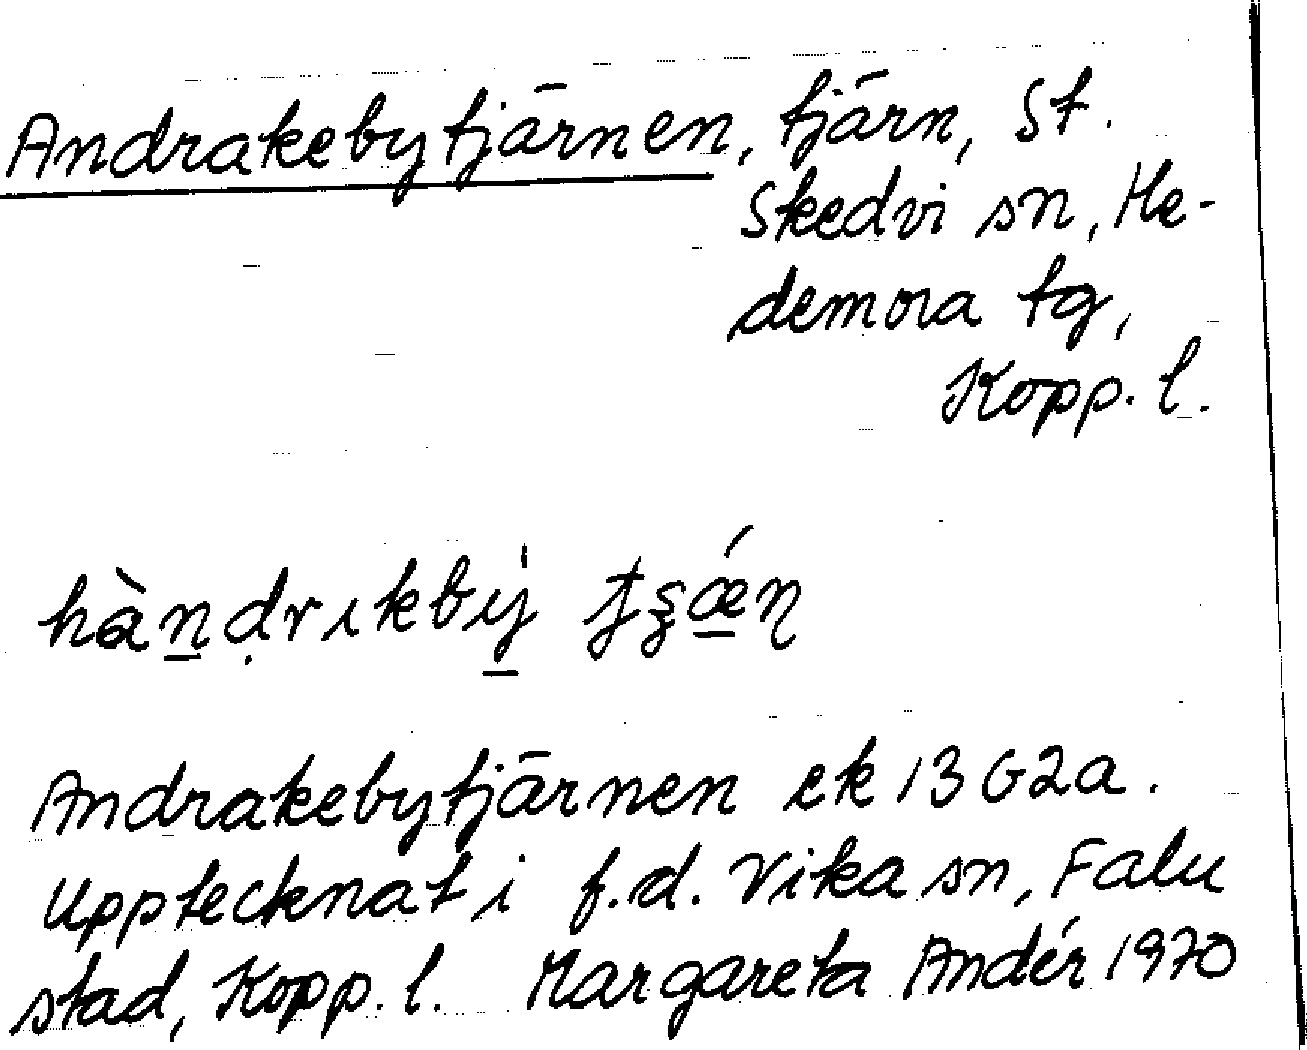 Andrakebytjärnen, tjärn, St.
Skedvi sn, He-
demora tg,
Kopp. l.
Andrakebytjärnen ek 13 G2a.
Upptecknat i f.d. Vika sn, Falu
stad, Kopp. l. Margareta Andér 1970